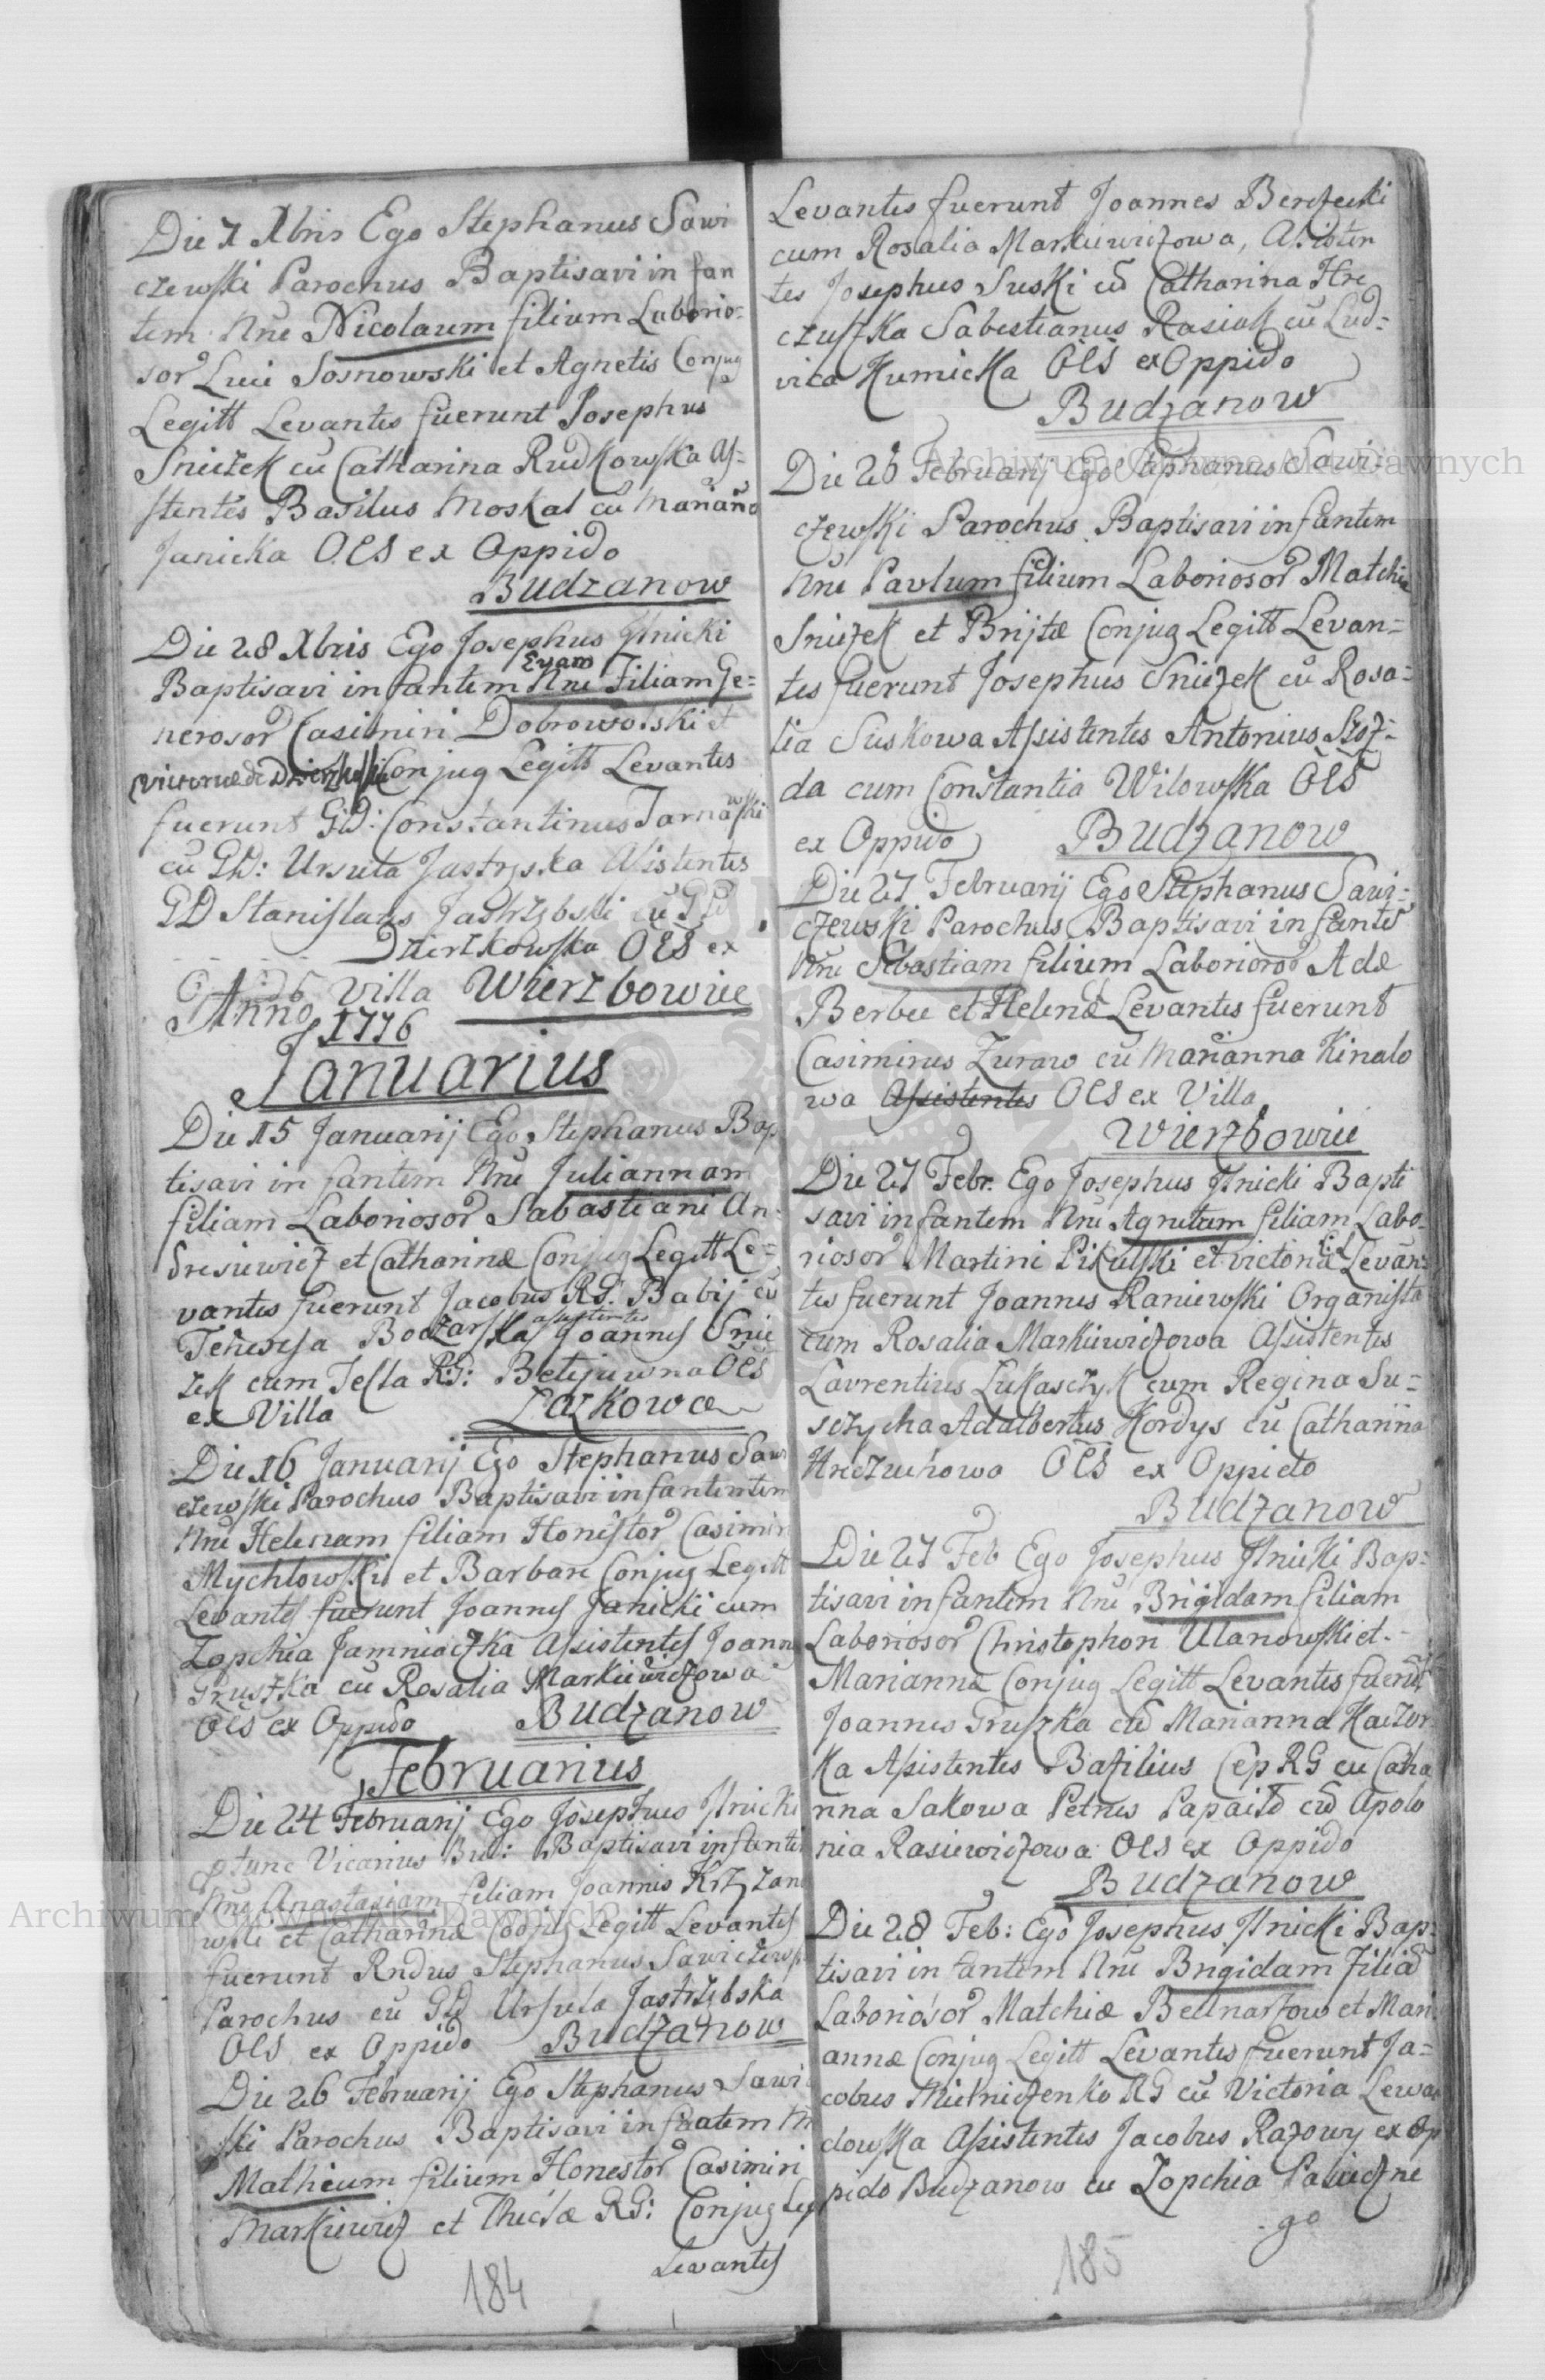 Die 7 Xbris Ego Stephanus Sawi
czewski Parochus Baptisavi in fan
tem Nne Nicolaum filium Laborio=
sor Luci Sosnowski et Agnetis Conjug
Legitt Levantes fuerunt Josephus
Sniezek cu Catharina Rudkowska As=
stentes Basilus Moskal cu Mariana
Janicka OES ex Oppido
Budzanow
Die 28 Xbris Ego Josephus Ilnicki
Evam
Baptisavi infantem Nne Filiam Ge=
nerosor Casimiri Dobrowolski et
Victoriae de Conjug Legitt Levantes
fuerunt GD: Constantinus Tarnawski
cu GD: Ursula Jastrzska Asistentes
GD Stanislaus Jastrzbski cu GD
Dzierzkowska OES ex
villa Wierzbowie
Anno 1776
Januarius
Die 15 Januarij Ego Stephanus Bap
tisavi in fantem Nne Juliannam
filiam Laboriosor Sabastiani An=
dresiewicz et Catharinae Conjug Legitt Le=
vantes fuerunt Jacobus RG. Babij cu
assistentes
Teheresa Boczarska Joannes Snie
zek cum Tesla RG: OES
ex Villa Laskowce
Die 16 Januarij Ego Stephanus Sawi
czewski Parochus Baptisavi infantentem
Nne Helenam filiam Honestor Casimiri
Mychlowski et Barbare Conjug Legitt
Levantes fuerunt Joannes Janicki cum
Zopchia Jamniaczka Assistentes Joann
Gruszka cu Rosalia Markiewiczowa
OES ex Oppido Budzanow
Februarius
Die 24 Februarij Ego Josephus Ilnicki
ptunc Vicarius Bu: Baptisavi infante
Nne Anastasiam filiam Joannis Krzyzano
wski et Catharinae Conjug Legitt Levantes
fuerunt Rndus Stephanus Sawiczewski
Parochus cu GD Ursula Jastrzebska
OES ex Oppido Budzanow
Die 26 Februarij Ego Stephanus Sawi
ski Parochus Baptisavi infantem Nn
Matheum filium Honestor Casimiri
Markiewicz et Theclae RG: Conjug Leg
Levantes
184
Levantes fuerunt Joannes Berezecki
cum Rosalia Markiewiczowa, Asisten
tes Josephus Suski cu Catharina Hre
czuszka Sabestianus Rasiak cu Lud=
vica Kumicka OES ex Oppido
Budzanow
Die 26 Februarij Ego Stephanus Sawi=
czewski Parochus Baptisavi infantem
Nne Pavlum filium Laboriosor Matchie
Sniezek et Brijtae Conjug Legitt Levan=
tes fuerunt Josephus Sniezek cu Rosa=
lia Suskowa Assistentes Antonius Szoz=
da cum Constantia Wilowska OES
ex Oppido Budzanow
Die 27 Februarij Ego Stephanus Sawi=
czewski Parochus Baptisavi infante
Nne Sebastiam filium Laborioror Adae
Berbec et Helenae Levantes fuerunt
Casimirus Zuraw cu Marianna Kinalo
wa Assistentes OES ex Villa
Wierzbowie
Die 27 Febr. Ego Josephus Ilnicki Bapti
savi infantem Nne Agnetam filiam Labo=
riosor Martini Pikulski et victoria Levan=
tes fuerunt Joannes Raniewski Organista
cum Rosalia Markiewiczowa Asistentes
Lavrentius Lukasczyk cum Regina Su=
sczycha Adalbertus Kordys cu Catharina
Hreczuchowa OES ex Oppido
Budzanow
Die 27 Feb Ego Josephus Ilnicki Bap=
tisavi infantem Nne Brigidam filiam
Laboriosor Christophori Ulanowski et
Marianna Conjug Legitt Levantes fuerut
Joannes Gruszka cu Marianna Kaczor
ka Assistentes Bazilius Cep RG cu Catha
rina Sakowa Petrus Papaito cu Apolo
nia Rasiewiczowa OES ex Oppido
Budzanow
Die 28 Feb: Ego Josephus Ilnicki Bap=
tisavi infantem Nne Brigidam Filia
Laboriosor Matchiae Bednarzow et Mari
annae Conjug Legitt Levantes fuerunt Ja=
cobus Mielniczenko RG cu Victoria Lewan
dowska Asistentes Jacobus Razowy ex Op
pido Budzanow cu Zopchia
go
185
Archiwum Główne Akt Dawnych
Archiwum Główne Akt Dawnych